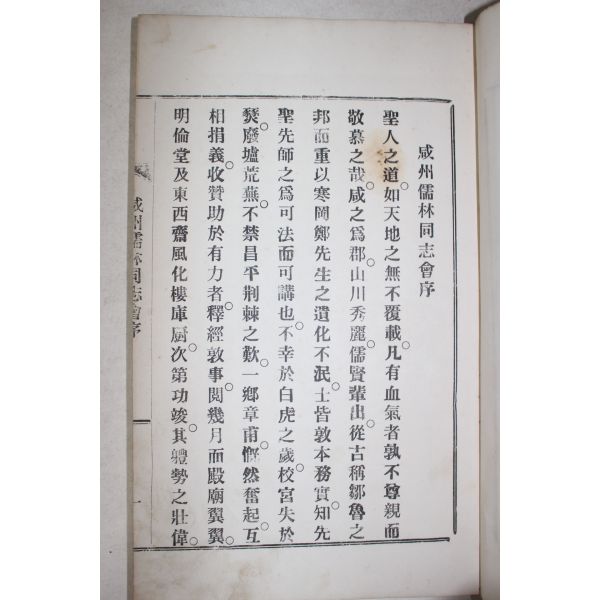 咸州儒林同志會序
聖人之道。如天地之無不覆載。凡有血氣者孰不尊親而
敬慕之哉。咸之爲郡。山川秀麗。儒賢輩出。從古稱鄒魯之
邦。而重以寒岡鄭先生之遺化不泯。士皆敦本務實。知先
聖先師之爲可法而可講也。不幸於白虎之歲。校宮失於
燹。廢墟荒蕪。不禁昌平荊棘之歎。一鄕章甫。慨然奮起。互
相捐義。收贊助於有力者。釋經敦事。閱幾月而殿廟翼翼。
明倫堂及東西齋風化樓庫厨。次第功竣。其軆勢之壯偉。
咸州儒林同志會序
一